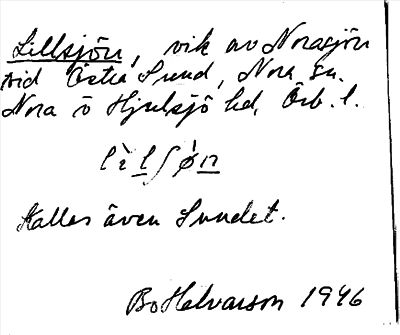 Lillsjön, vik av Norasjön
vid Östra Sund, Nora sn.
Nora o Hjulsjö hd, Örb. l.
lìlʃøn
Kallas även Sundet.
Bo Helvarson 1946